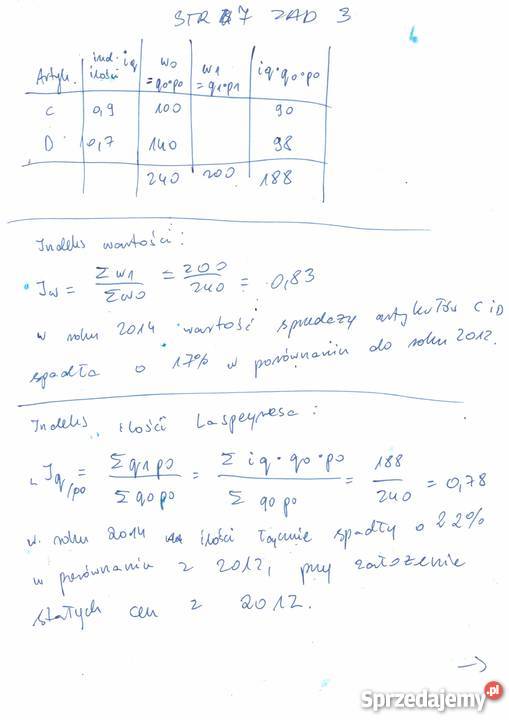 STR 7 ZAD 3
Artyk. | ind. iq ilości | w0 = q0·p0 | w1 = q1·p1 | iq·q0·p0
C | 0,9 | 100 | | 90
D | 0,7 | 140 | | 98
240 | 200 | 188
Indeks wartości:
Iw = Σw1 / Σw0 = 200 / 240 = 0,83
w roku 2014 wartość sprzedaży artykułów C i D
spadła o 17% w porównaniu do roku 2012.
Indeks ilości Laspeyresa:
Iq/p0 = Σq1p0 / Σq0p0 = Σ iq·q0·p0 / Σ q0p0 = 188 / 240 = 0,78
w roku 2014 ilości łącznie spadły o 22%
w porównaniu z 2012, przy założenie
stałych cen z 2012.
→
Sprzedajemy.pl